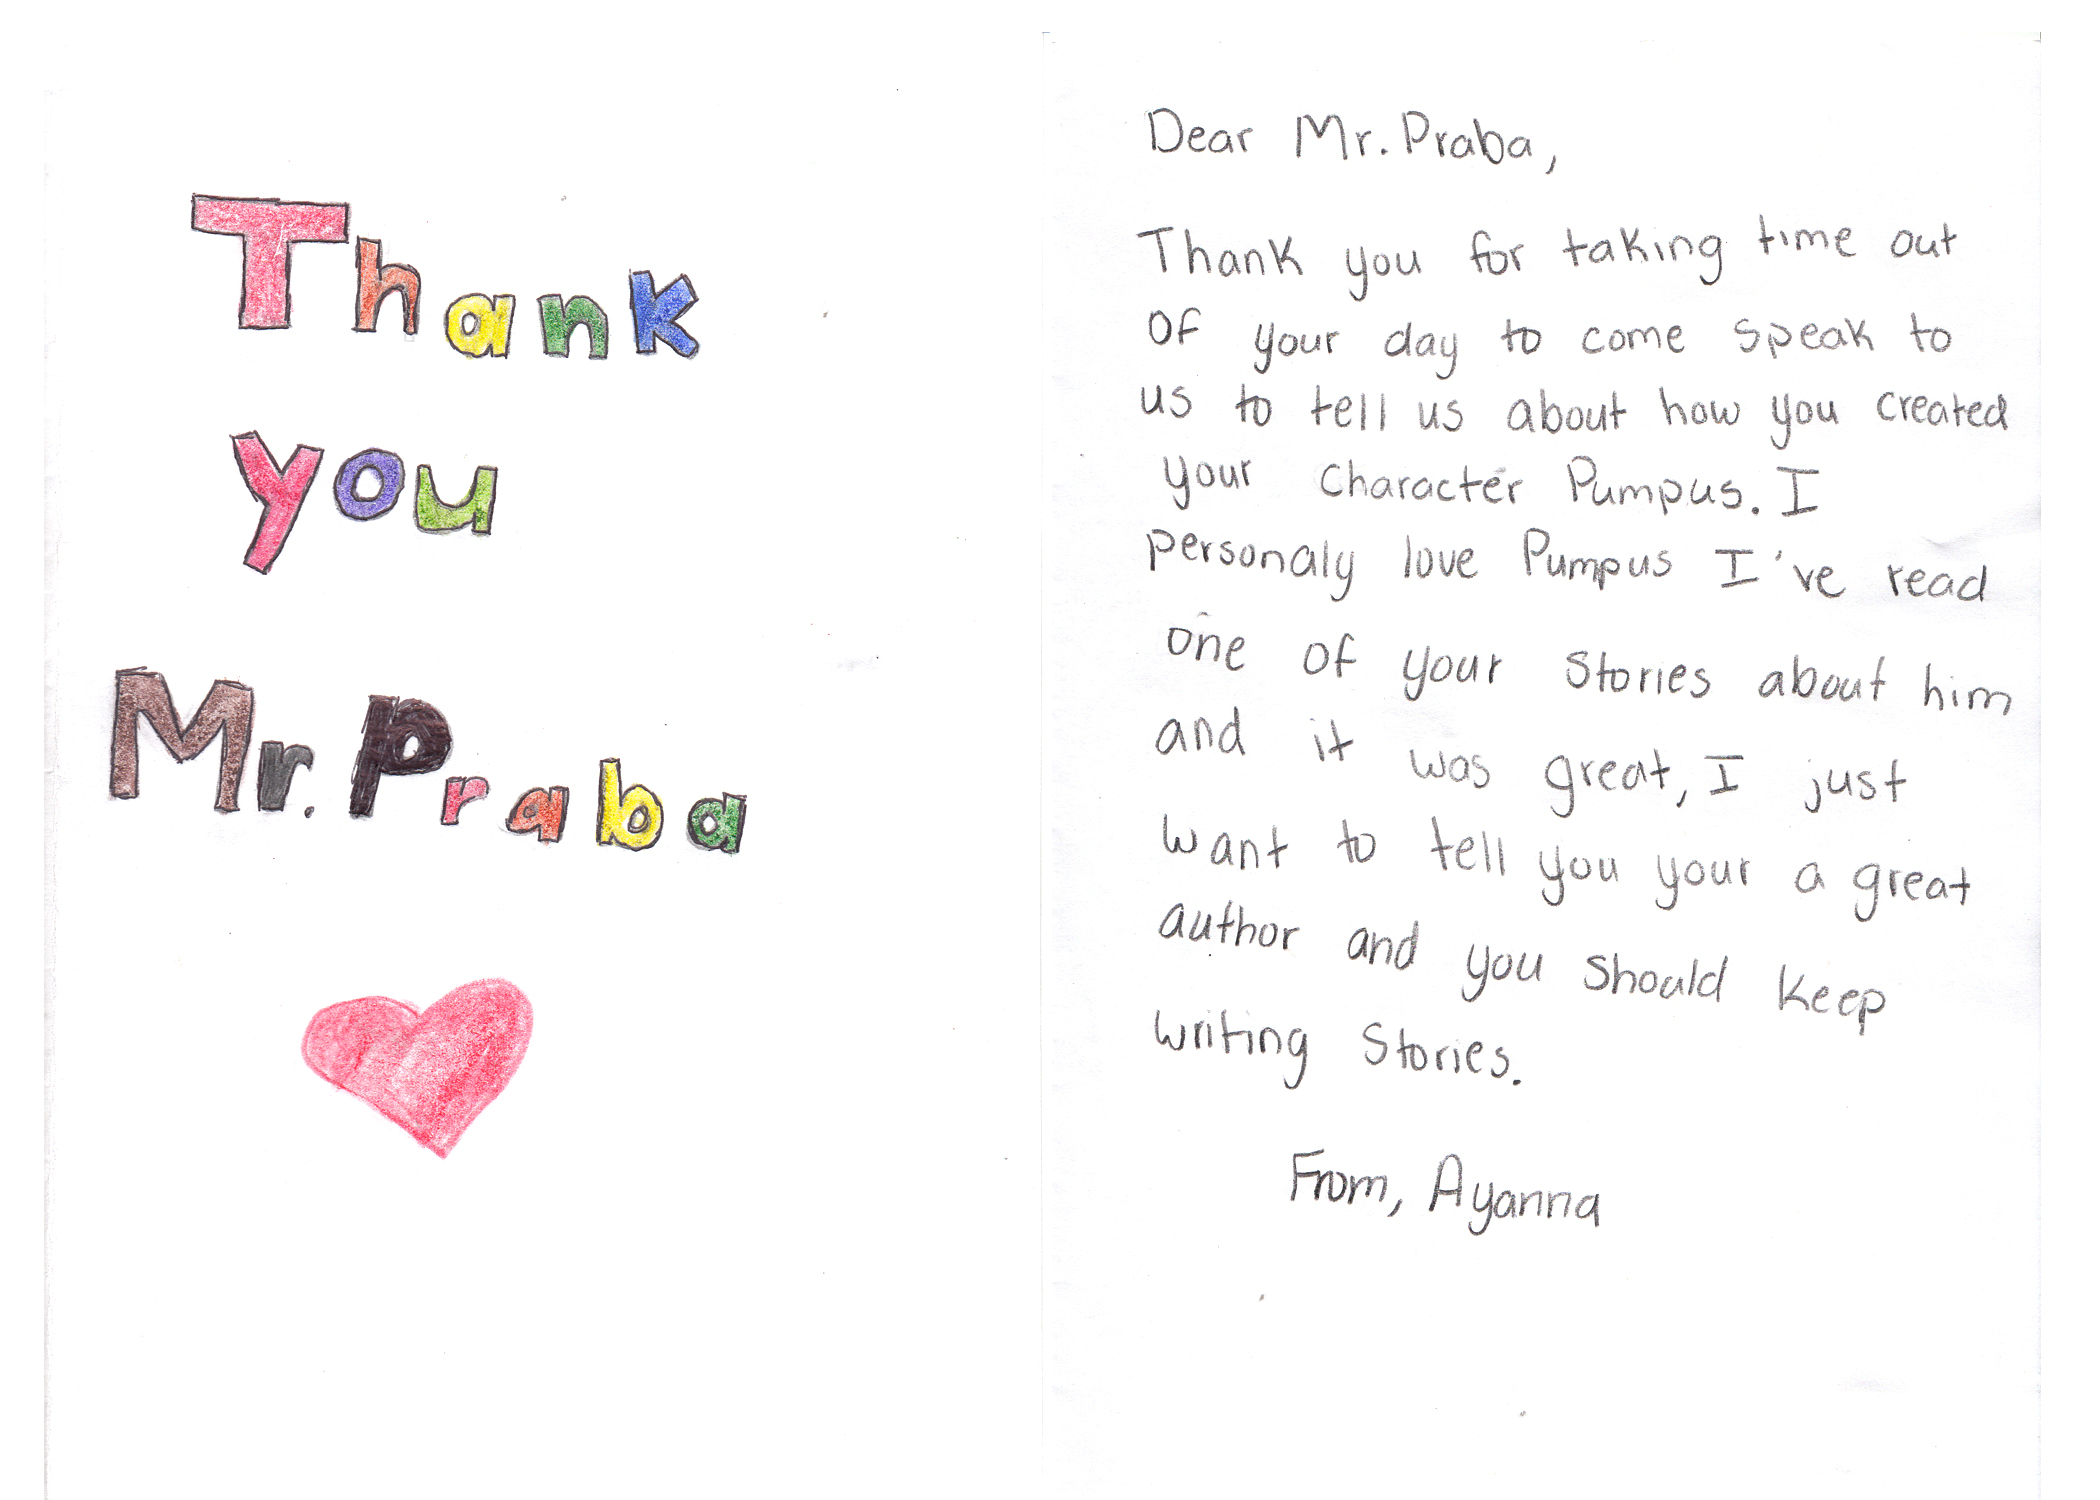 Thank
you
Mr. Praba
Dear Mr. Praba,
Thank you for taking time out
of your day to come speak to
us to tell us about how you created
your character Pumpus. I
personaly love Pumpus I've read
one of your stories about him
and it was great, I just
want to tell you your a great
author and you should keep
writing stories.
From, Ayanna